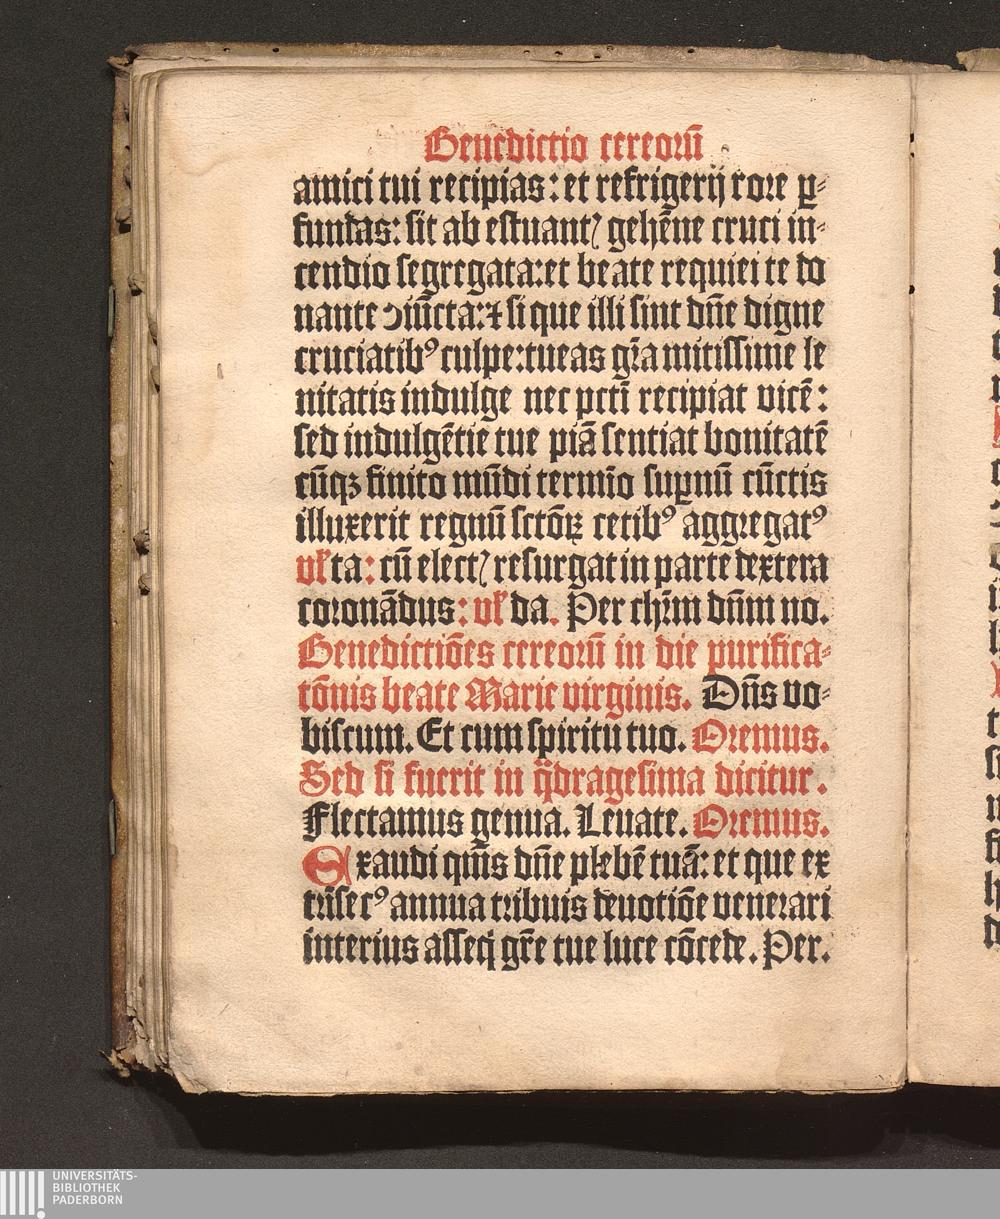 Benedictio cereorū
amici tui recipias: et refrigerij rore ꝑ⸗
fundas: sit ab estuantꝭ gehēne cruci in⸗
cendio segregata: et beate requiei te do
nante ↄiūcta: ⁊ si que illi sint dn̄e digne
cruciatibꝰ culpe: tueas gr̄a mitissime le
nitatis indulge nec pcti recipiat vicē:
sed indulgētie tue piā sentiat bonitatē
cūqꝫ finito mūdi termīo suꝑnū cūctis
illuxerit regnū sctōꝝ cetibꝰ aggregatꝰ
vl̓ ta: cū electꝭ resurgat in parte dextera
coronādus: vl̓ da. Per chr̄m dn̄m no.
Benedictiōes cereorū in die purifica⸗
tōnis beate Marie virginis. Dn̄s vo⸗
biscum. Et cum spiritu tuo. Oremus.
Sed si fuerit in q̄dragesima dicitur.
Flectamus genua. Leuate. Oremus.
Exaudi qm̄s dn̄e plebē tuā: et que ex
trīsecꝰ annua tribuis deuotiōe venerari
interius asseq̄ gr̄e tue luce cōcede. Per.
UNIVERSITÄTS-
BIBLIOTHEK
PADERBORN